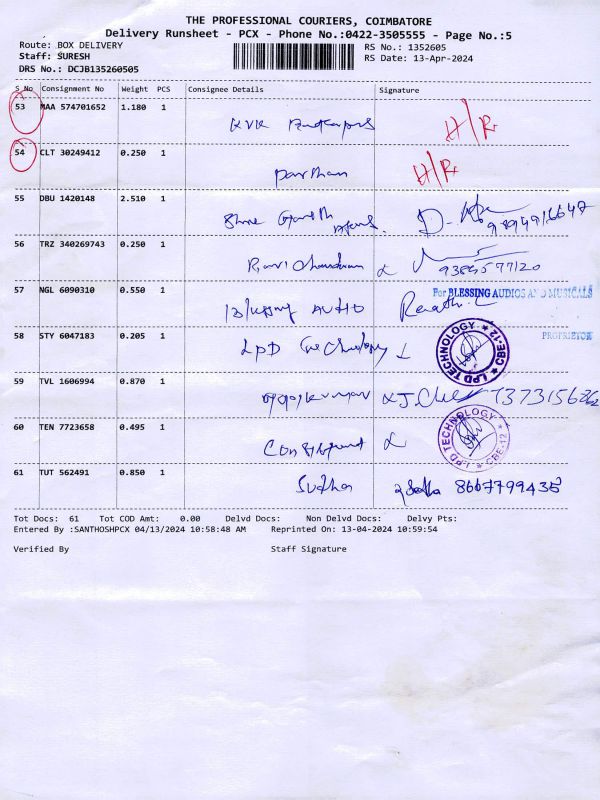 THE PROFESSIONAL COURIERS, COIMBATORE
Delivery Runsheet - PCX - Phone No.:0422-3505555 - Page No.:5
Route: BOX DELIVERY RS No.: 1352605
Staff: SURESH RS Date: 13-Apr-2024
DRS No.: DCJB135260505
S No Consignment No Weight PCS Consignee Details Signature
53 MAA 574701652 1.180 1 KVR H/R
54 CLT 30249412 0.250 1 Darshan H/R
55 DBU 1420148 2.510 1 Shree
56 TRZ 340269743 0.250 1 Ravi Chandran
57 NGL 6090310 0.550 1 Blessing AUDIO
For BLESSING AUDIOS AND MUSICALS
PROPRIETOR
58 STY 6047183 0.205 1 LPD Technology
LPD TECHNOLOGY * CBE-12 *
59 TVL 1606994 0.870 1
60 TEN 7723658 0.495 1
LPD TECHNOLOGY * CBE-12 *
61 TUT 562491 0.850 1 Sudha 8667799435
Tot Docs: 61 Tot COD Amt: 0.00 Delvd Docs: Non Delvd Docs: Delvy Pts:
Entered By :SANTHOSHPCX 04/13/2024 10:58:48 AM Reprinted On: 13-04-2024 10:59:54
Verified By Staff Signature